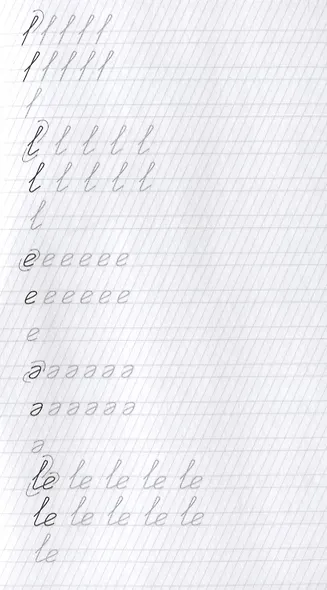 l l l l l
l l l l l
l
e e e e e e
e e e e e e
e
ə ə ə ə ə ə
ə ə ə ə ə ə
ə
le le le le le
le le le le le
le